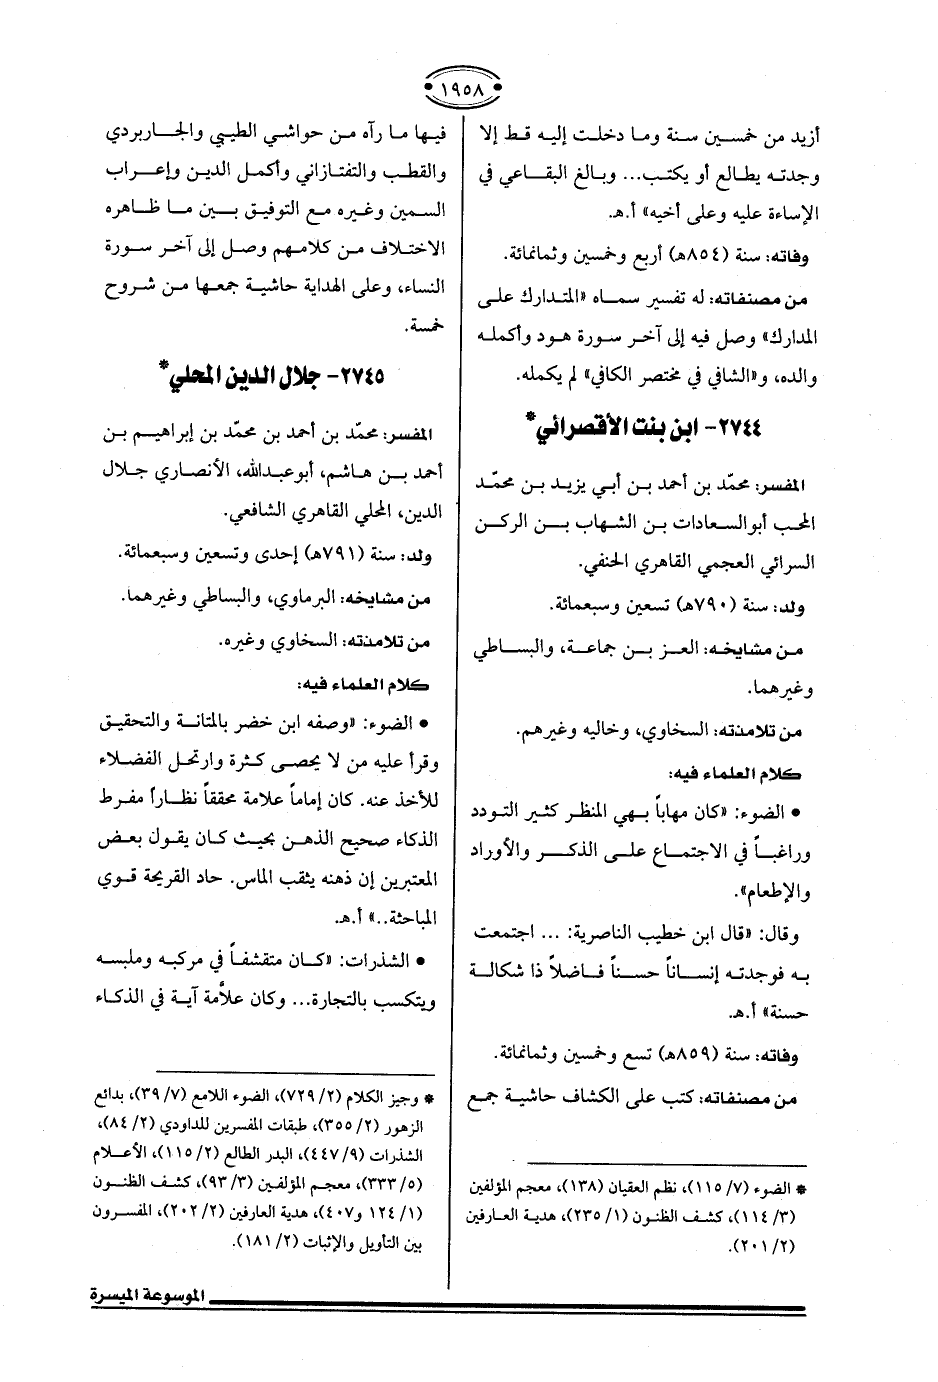 ١٩٥٨
أزيد من خمسين سنة وما دخلت إليه قط إلا
وجدته يطالع أو يكتب... وبالغ البقاعي في
الإساءة عليه وعلى أخيه» أ.هـ.
وفاته: سنة (٨٥٤هـ) أربع وخمسين وثمانمائة.
من مصنفاته: له تفسير سماه «المتدارك على
المدارك» وصل فيه إلى آخر سورة هود وأكمله
والده، و«الشافي في مختصر الكافي» لم يكمله.
٢٧٤٤- ابن بنت الأقصرائي*
المفسر: محمّد بن أحمد بن أبي يزيد بن محمّد
المحب أبوالسعادات بن الشهاب بن الركن
السرائي العجمي القاهري الحنفي.
ولد: سنة (٧٩٠هـ) تسعين وسبعمائة.
من مشايخه: العز بن جماعة، والبساطي
وغيرهما.
من تلامذته: السخاوي، وخاليه وغيرهم.
كلام العلماء فيه:
• الضوء: «كان مهاباً بهي المنظر كثير التودد
وراغباً في الاجتماع على الذكر والأوراد
والإطعام».
وقال: «قال ابن خطيب الناصرية: ... اجتمعت
به فوجدته إنساناً حسناً فاضلاً ذا شكالة
حسنة» أ.هـ.
وفاته: سنة (٨٥٩هـ) تسع وخمسين وثمانمائة.
من مصنفاته: كتب على الكشاف حاشية جمع
* الضوء (٧/ ١١٥)، نظم العقيان (١٣٨)، معجم المؤلفين
(٣/ ١١٤)، كشف الظنون (١/ ٢٣٥)، هدية العارفين
(٢/ ٢٠١).
فيها ما رآه من حواشي الطيبي والجاربردي
والقطب والتفتازاني وأكمل الدين وإعراب
السمين وغيره مع التوفيق بين ما ظاهره
الاختلاف من كلامهم وصل إلى آخر سورة
النساء، وعلى الهداية حاشية جمعها من شروح
خمسة.
٢٧٤٥- جلال الدين المحلي*
المفسر: محمّد بن أحمد بن محمّد بن إبراهيم بن
أحمد بن هاشم، أبوعبدالله، الأنصاري جلال
الدين، المحلي القاهري الشافعي.
ولد: سنة (٧٩١هـ) إحدى وتسعين وسبعمائة.
من مشايخه: البرماوي، والبساطي وغيرهما.
من تلامذته: السخاوي وغيره.
كلام العلماء فيه:
• الضوء: «وصفه ابن خضر بالمتانة والتحقيق
وقرأ عليه من لا يحصى كثرة وارتحل الفضلاء
للأخذ عنه. كان إماماً علامة محققاً نظاراً مفرط
الذكاء صحيح الذهن بحيث كان يقول بعض
المعتبرين إن ذهنه يثقب الماس. حاد القريحة قوي
المباحثة..» أ.هـ.
• الشذرات: «كان متقشفاً في مركبه وملبسه
ويتكسب بالتجارة... وكان علاَّمة آية في الذكاء
* وجيز الكلام (٢/ ٧٢٩)، الضوء اللامع (٧/ ٣٩)، بدائع
الزهور (٢/ ٣٥٥)، طبقات المفسرين للداودي (٢/ ٨٤)،
الشذرات (٩/ ٤٤٧)، البدر الطالع (٢/ ١١٥)، الأعلام
(٥/ ٣٣٣)، معجم المؤلفين (٣/ ٩٣)، كشف الظنون
(١/ ١٢٤ و٤٠٧)، هدية العارفين (٢/ ٢٠٢)، المفسرون
بين التأويل والإثبات (٢/ ١٨١).
الموسوعة الميسرة